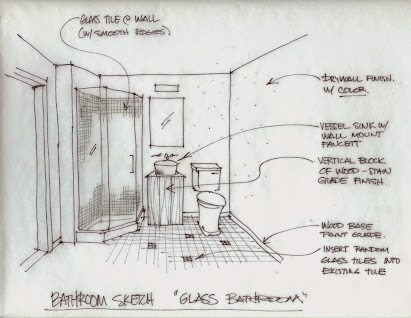 GLASS TILE @ WALL
(W/ SMOOTH EDGES)
DRYWALL FINISH.
W/ COLOR.
VESSEL SINK W/
WALL MOUNT
FAUCETT
VERTICAL BLOCK
OF WOOD - STAIN
GRADE FINISH.
WOOD BASE
PAINT GRADE.
INSERT RANDOM
GLASS TILES INTO
EXISTING TILE
BATHROOM SKETCH "GLASS BATHROOM"